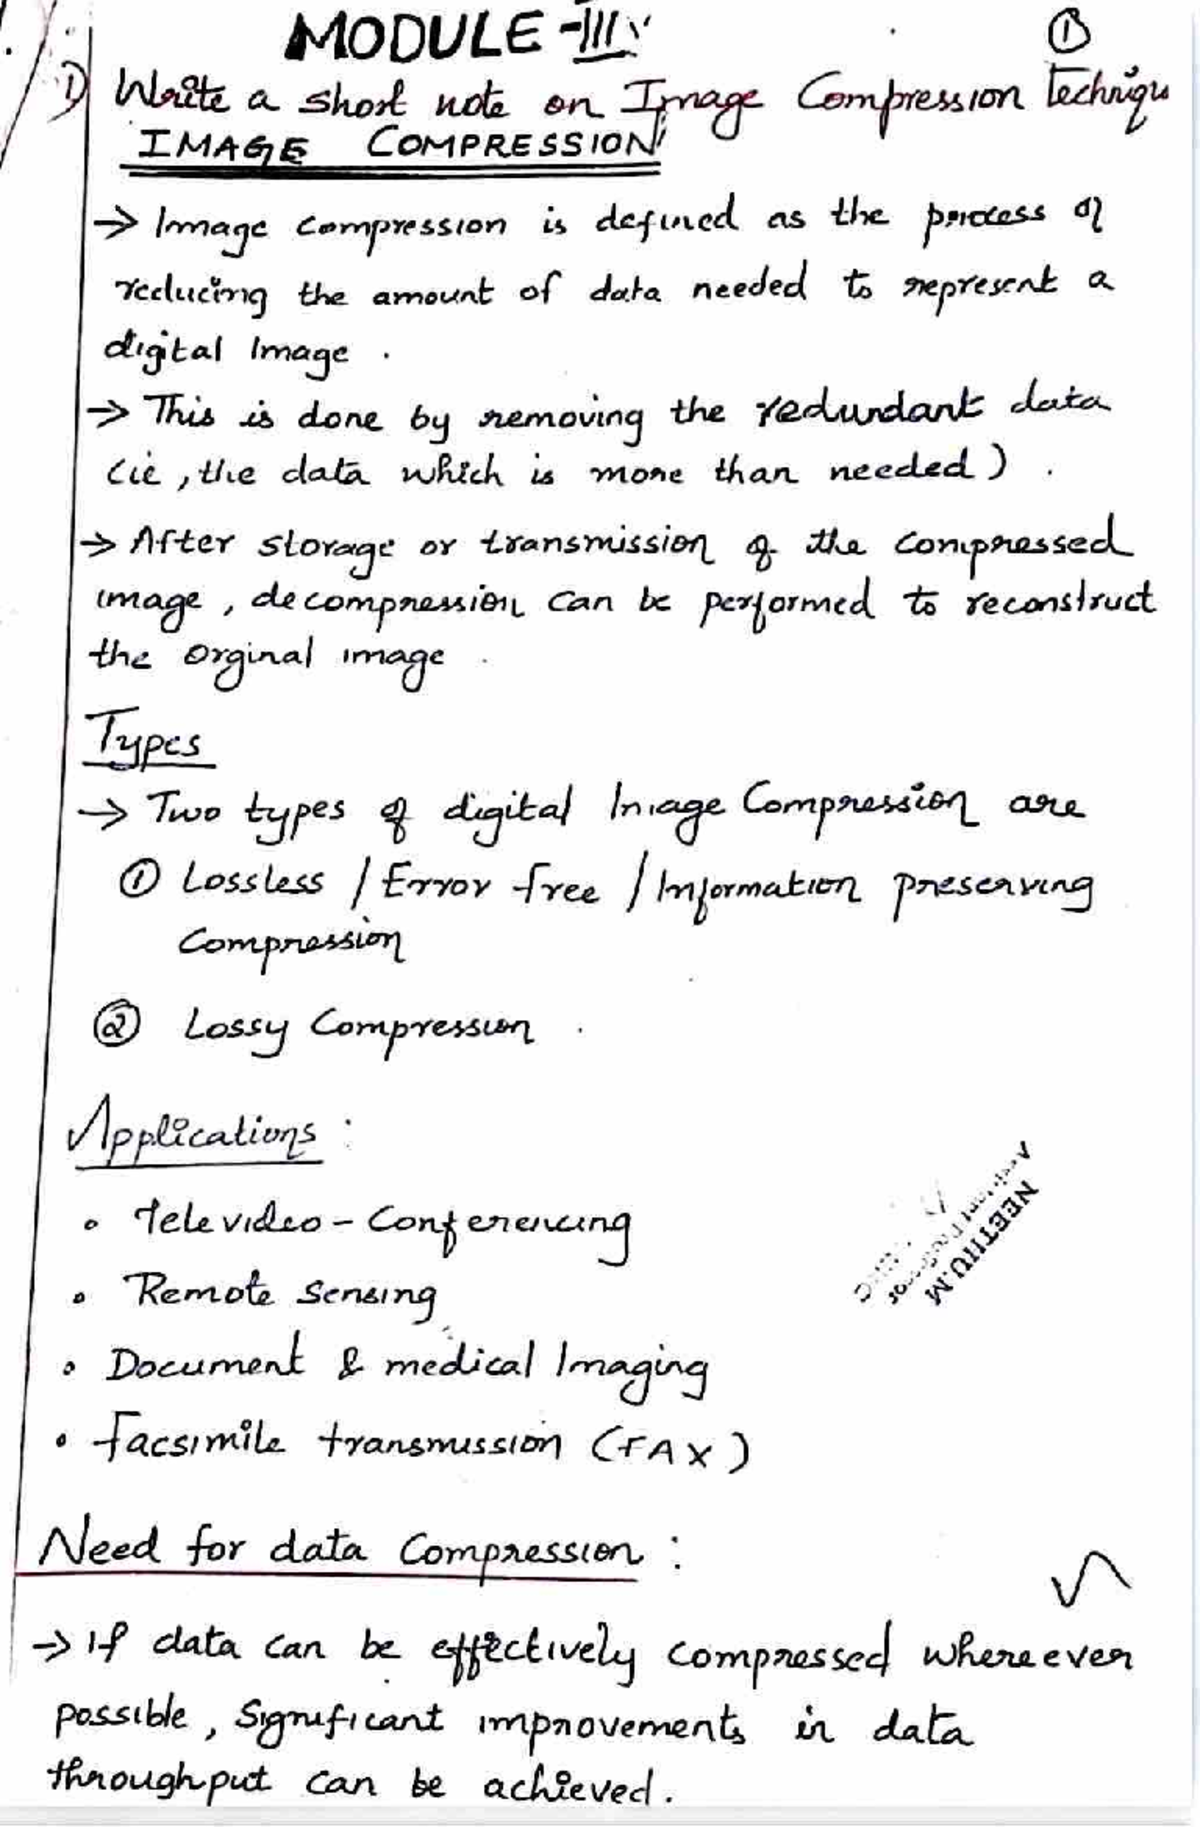 MODULE-III
1
1) Write a short note on Image Compression Techniqu
IMAGE COMPRESSION
→ Image compression is defined as the process of
reducing the amount of data needed to represent a
digital Image .
→ This is done by removing the redundant data
(ie, the data which is more than needed) .
→ After storage or transmission of the compressed
image, decompression can be performed to reconstruct
the orginal image .
Types
→ Two types of digital Image Compression are
① Lossless / Error free / Information preserving
Compression
② Lossy Compression .
Applications :
• Televideo - Conferencing
• Remote Sensing
• Document & medical Imaging
• Facsimile transmission (FAX)
NEETHU.M
Need for data Compression :
→ If data can be effectively compressed whereever
possible, significant improvements in data
throughput can be achieved.